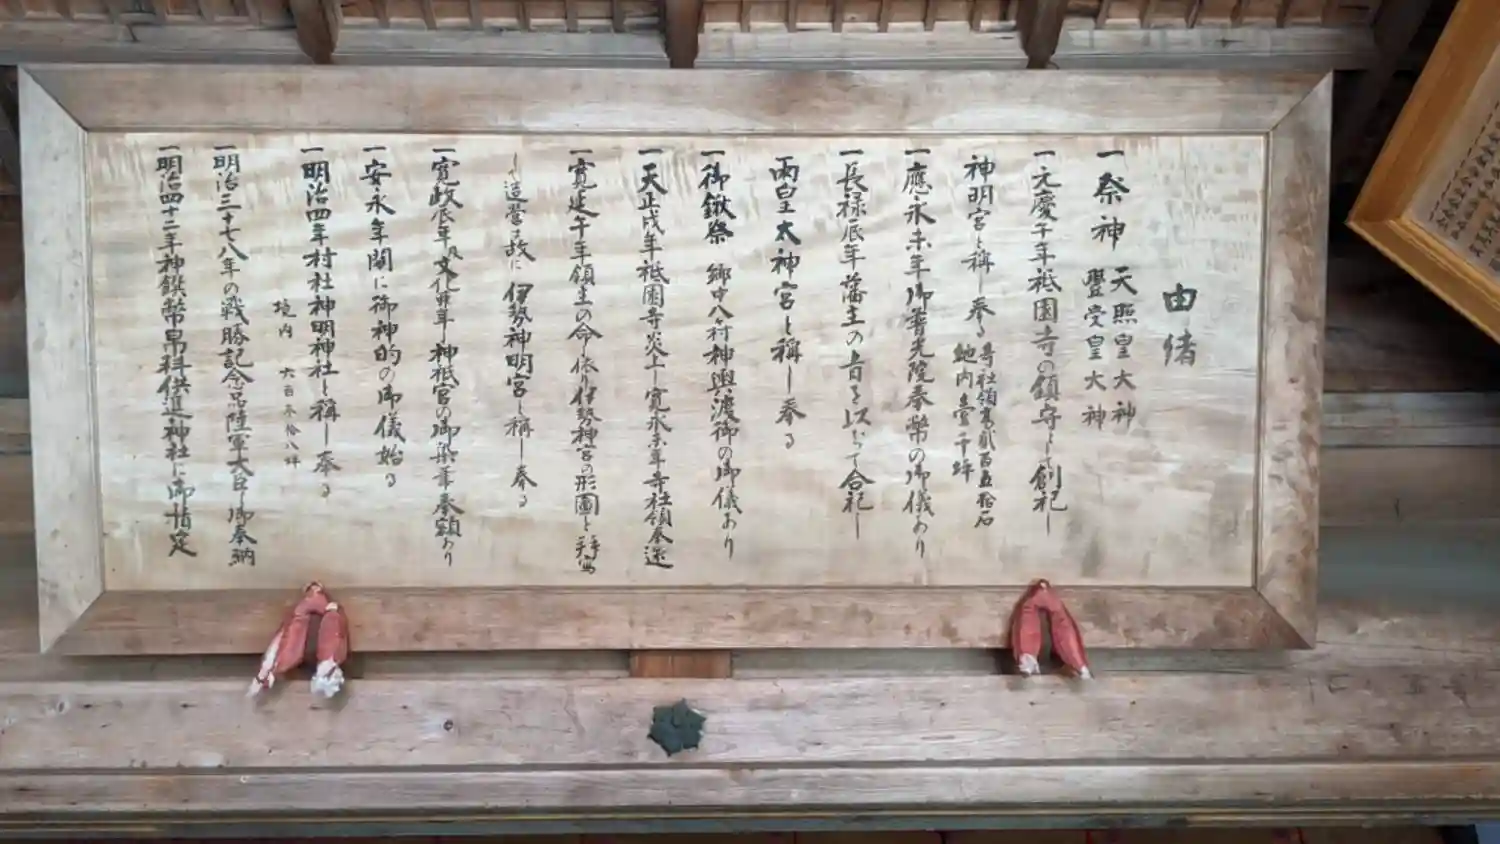 由緒
一祭神 天照皇大神
豐受皇大神
一元慶午年祗園寺の鎮守と創祀し
神明宮と稱し奉る 寺社領高貳百五拾石
地内壹千坪
一應永未年御普光院奉幣の御儀あり
一長禄辰年藩主の旨を以って合祀し
兩皇大神宮と稱し奉る
一御鍬祭 郷中八ヶ村神輿渡御の御儀あり
一天正戌年祗園寺炎上し寛永未年寺社領奉還
一寛延午年領主の命に依り伊勢神宮の形圖を拜寫
し造営す故に伊勢神明宮と稱し奉る
一寛政辰年及文化 年神祗官の御染筆奉額あり
一安永年間に御神的の御儀始る
一明治四年村社神明神社と稱し奉る
境内 六百 拾八坪
一明治三十七八年の戰勝記念品陸軍大臣し御奉納
一明治四十二年神饌幣帛料供進神社に御指定